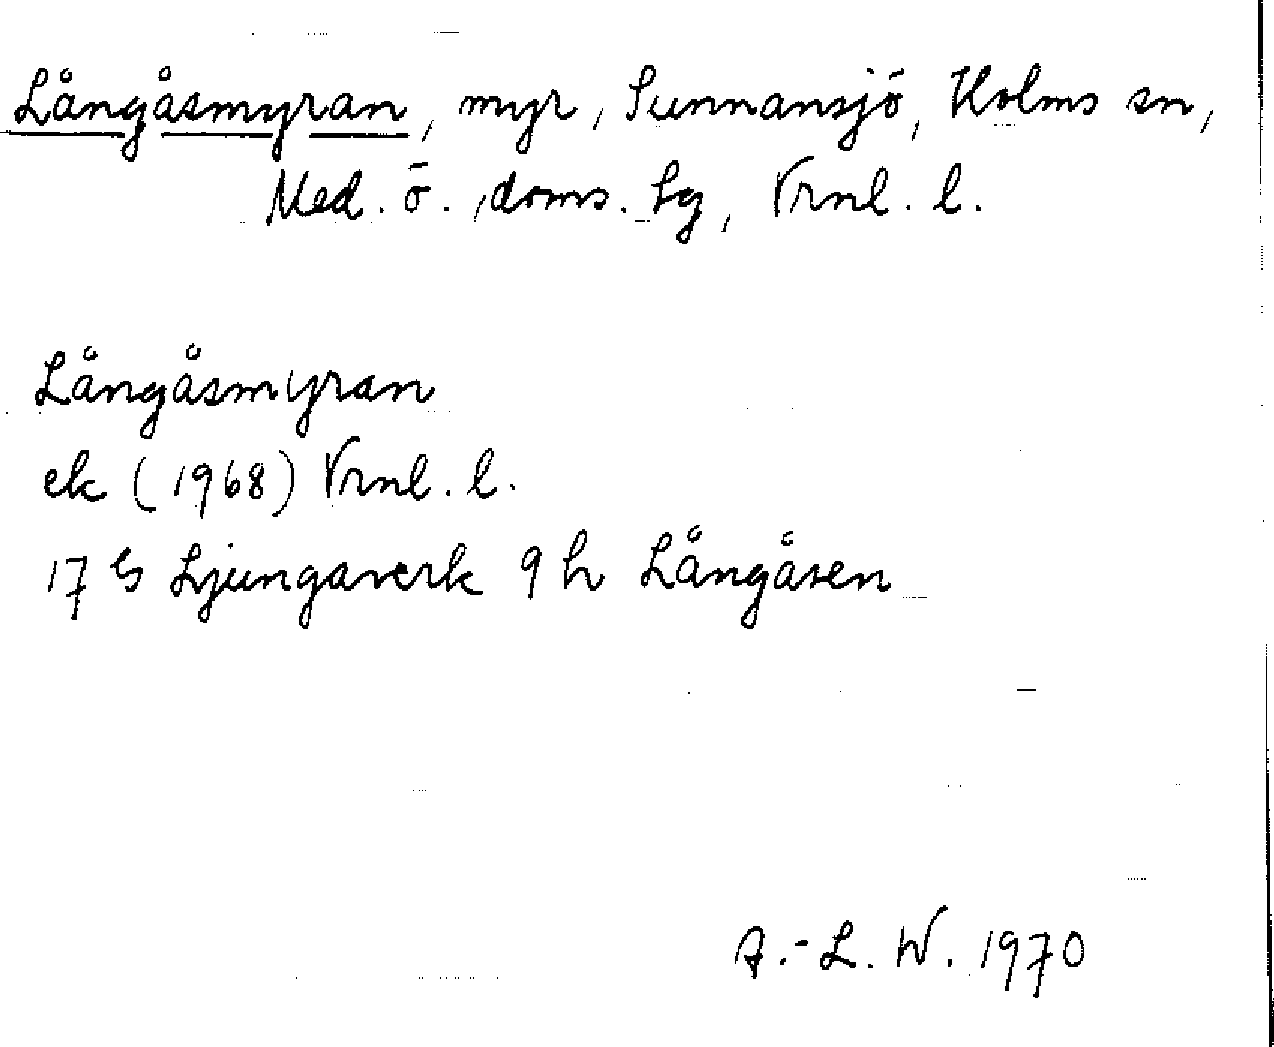 Långåsmyran, myr, Sunnansjö, Holms sn,
Med. ö. doms. hg, Vrnl. l.
Långåsmyran
ek (1968) Vrnl. l.
17 G Ljungaverk 9 h Långåsen
A.-L. W. 1970